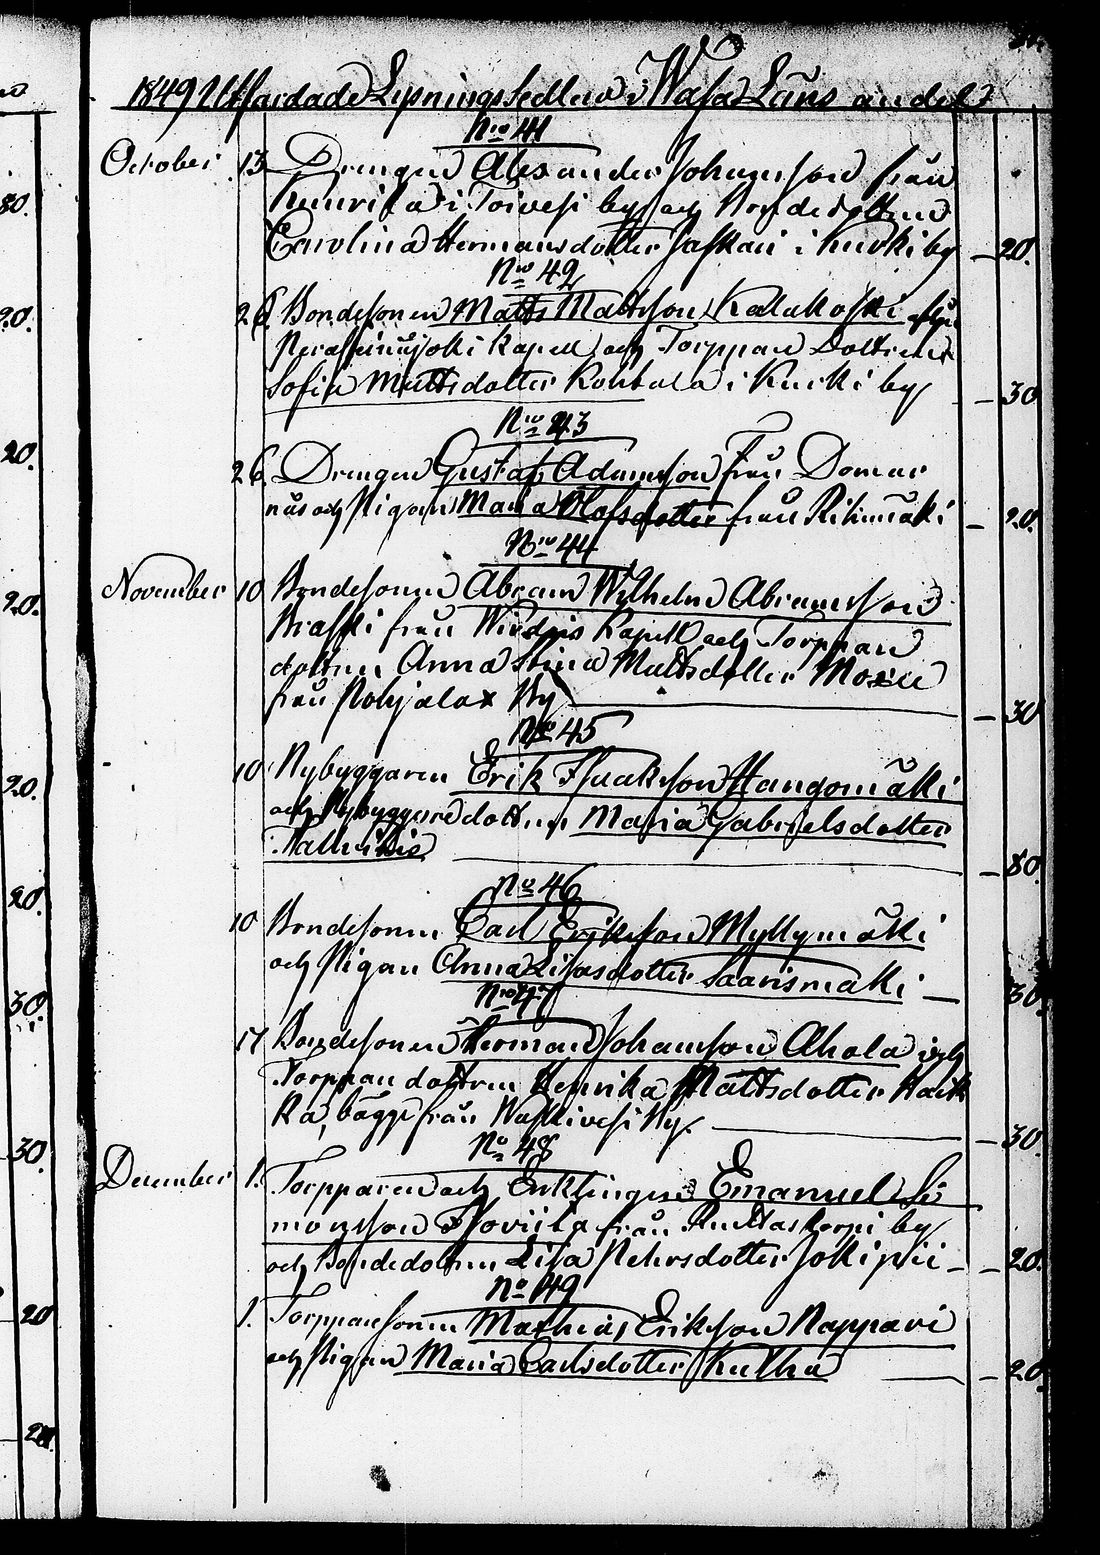 1849 Utfärdade Lysningssedlar i Wasa Läns andel
No 41
October 13 Drengen Alexander Johansson från
Henrika i Toivesi by och Bondedottren
Carolina Hermansdotter Jaskari i Kurki by 20.
No 42
26. Bondesonen Matts Mattsson Kalakoski
Peräseinäjoki Kapell och Torppare Dottren
Sofia Mattsdotter Kohtala i Kurki by 30
No 43
26. Drengen Gustaf Adamsson från Domar
näs och Pigan Maria Olofsdotter från Rihimäki 20.
No 44
November 10 Bondesonen Abram Wilhelm Abramsson
från Wirdois Kapell och Torppare
dottren Anna Stina Mattsdotter
från Pohjalax By 30
No 45
10 Nybyggaren Erik Isaaksson Hangomäki
och Nybyggaredottren Maria Gabrielsdotter
80.
No 46
10 Bondesonen Carl Eriksson Myllymäki
och Pigan Anna Lisasdotter Saarismäki 30
No 47
17 Bondesonen Herman Johansson Ahola och
Torppare dottren Henrika Mattsdotter Haik
ka, bägge från Waskivesi By. 30.
No 48
December 1. Torpparen och Enklingen Emanuel Si
monsson från Ruttaskorpi by
och Bondedottren Lisa Petersdotter Jokipii 20.
No 49
1. Torpparesonen Mathias Eriksson Rappari
och Pigan Maria Carlsdotter Kulha 20.